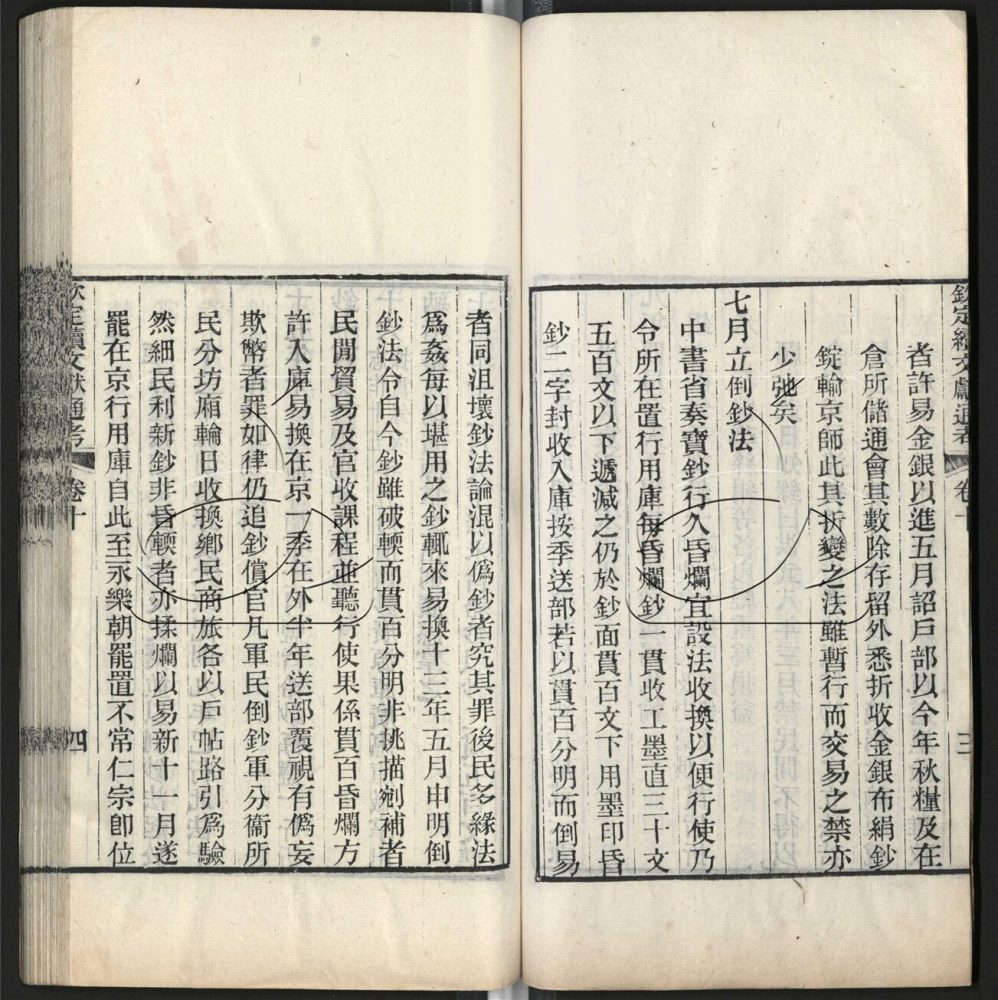 欽定續文獻通考 卷十 三
者許易金銀以進五月詔戶部以今年秋糧及在
倉所儲通會其數除存留外悉折收金銀布絹鈔
錠輸京師此其折變之法雖暫行而交易之禁亦
少弛矣
七月立倒鈔法
中書省奏寶鈔行久昏爛宜設法收換以便行使乃
令所在置行用庫每昏爛鈔一貫收工墨直三十文
五百文以下遞減之仍於鈔面貫百文下用墨印昏
鈔二字封收入庫按季送部若以貫百分明而倒易
者同沮壞鈔法論混以僞鈔者究其罪後民多緣法
爲姦每以堪用之鈔輒來易換十三年五月申明倒
鈔法令自今鈔雖破輭而貫百分明非挑描剜補者
民間貿易及官收課程並聽行使果係貫百昏爛方
許入庫易換在京一季在外半年送部覆視有僞妄
欺弊者罪如律仍追鈔償官凡軍民倒鈔軍分衞所
民分坊廂輪日收換鄉民商旅各以戶帖路引爲驗
然細民利新鈔非昏輭者亦揉爛以易新十一月遂
罷在京行用庫自此至永樂朝罷置不常仁宗卽位
欽定續文獻通考 卷十 四